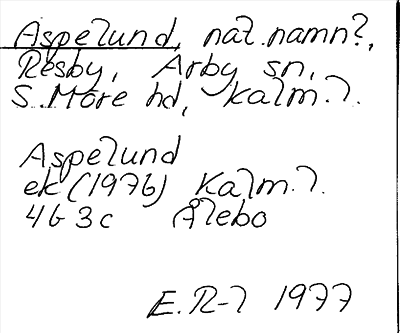 Aspelund, nat.namn?,
Resby, Arby sn,
S. Möre hd, Kalm. l.
Aspelund
ek (1976) Kalm. l.
4G 3c Ålebo
E. R-l 1977